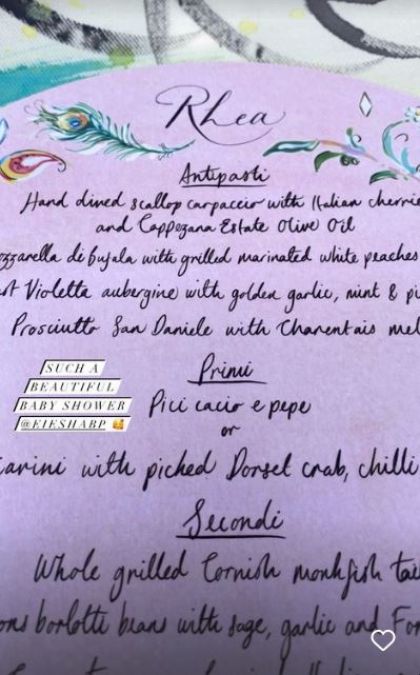 Rhea
Antipasti
Hand dived scallop carpaccio with Italian cherrie
and Cappezana Estate Olive Oil
ozzarella di bufala with grilled marinated white peaches
Violetta aubergine with golden garlic, mint & pi
Prosciutto San Daniele with Charentais mel
SUCH A
BEAUTIFUL
BABY SHOWER
@EIESHABP
Primi
Pici cacio e pepe
or
arini with picked Dorset crab, chilli
Secondi
Whole grilled Cornish monkfish tai
ons borlotti beans with sage, garlic and For